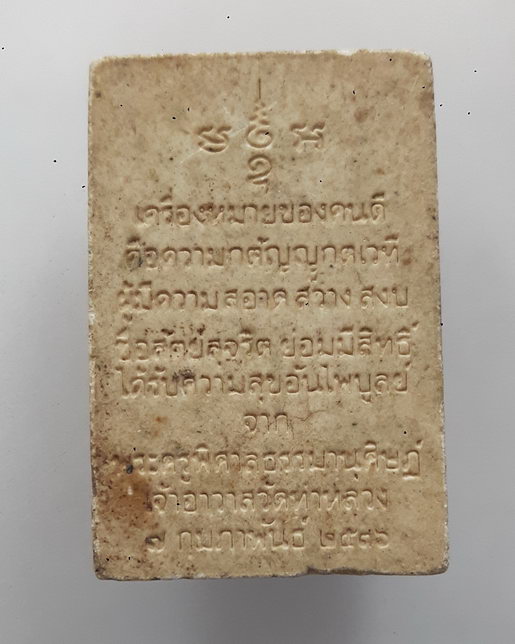 เครื่องหมายของคนดี
คือความกตัญญูกตเวที
ผู้มีความ สอาด สว่าง สงบ
ซื่อสัตย์สุจริต ย่อมมีสิทธิ์
ได้รับความสุขอันไพบูลย์
จาก
พระครูพิศาลธรรมานุศิษฏ์
เจ้าอาวาสวัดท่าหลวง
๗ กุมภาพันธ์ ๒๕๔๖